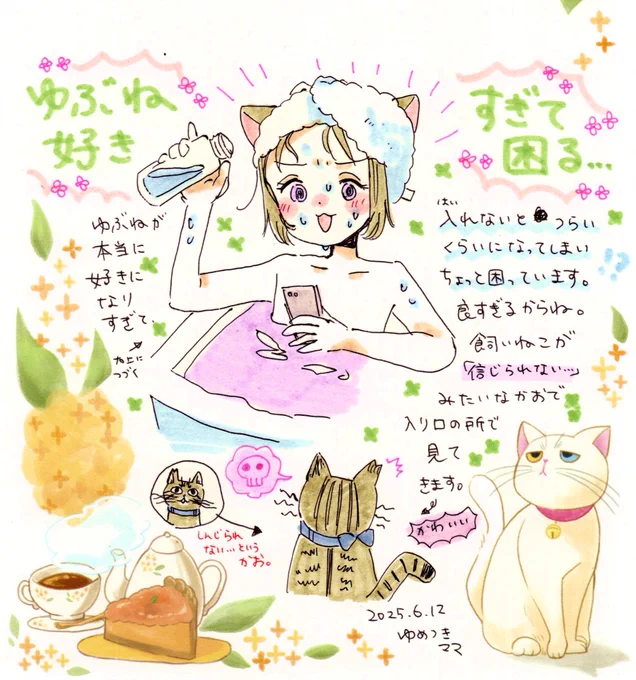 ゆぶね
好き
すぎて
困る…
ゆぶねが
本当に
好きに
なり
すぎて、
右上に
つづく
はい
入れないと つらい
くらいになってしまい
ちょっと困っています。
良すぎるからね。
飼いねこが
「信じられない…」
みたいなかおで
入り口の所で
見て
きます。
かわいい
しんじられ
ない…という
かお。
2025.6.12
ゆめつき
ママ